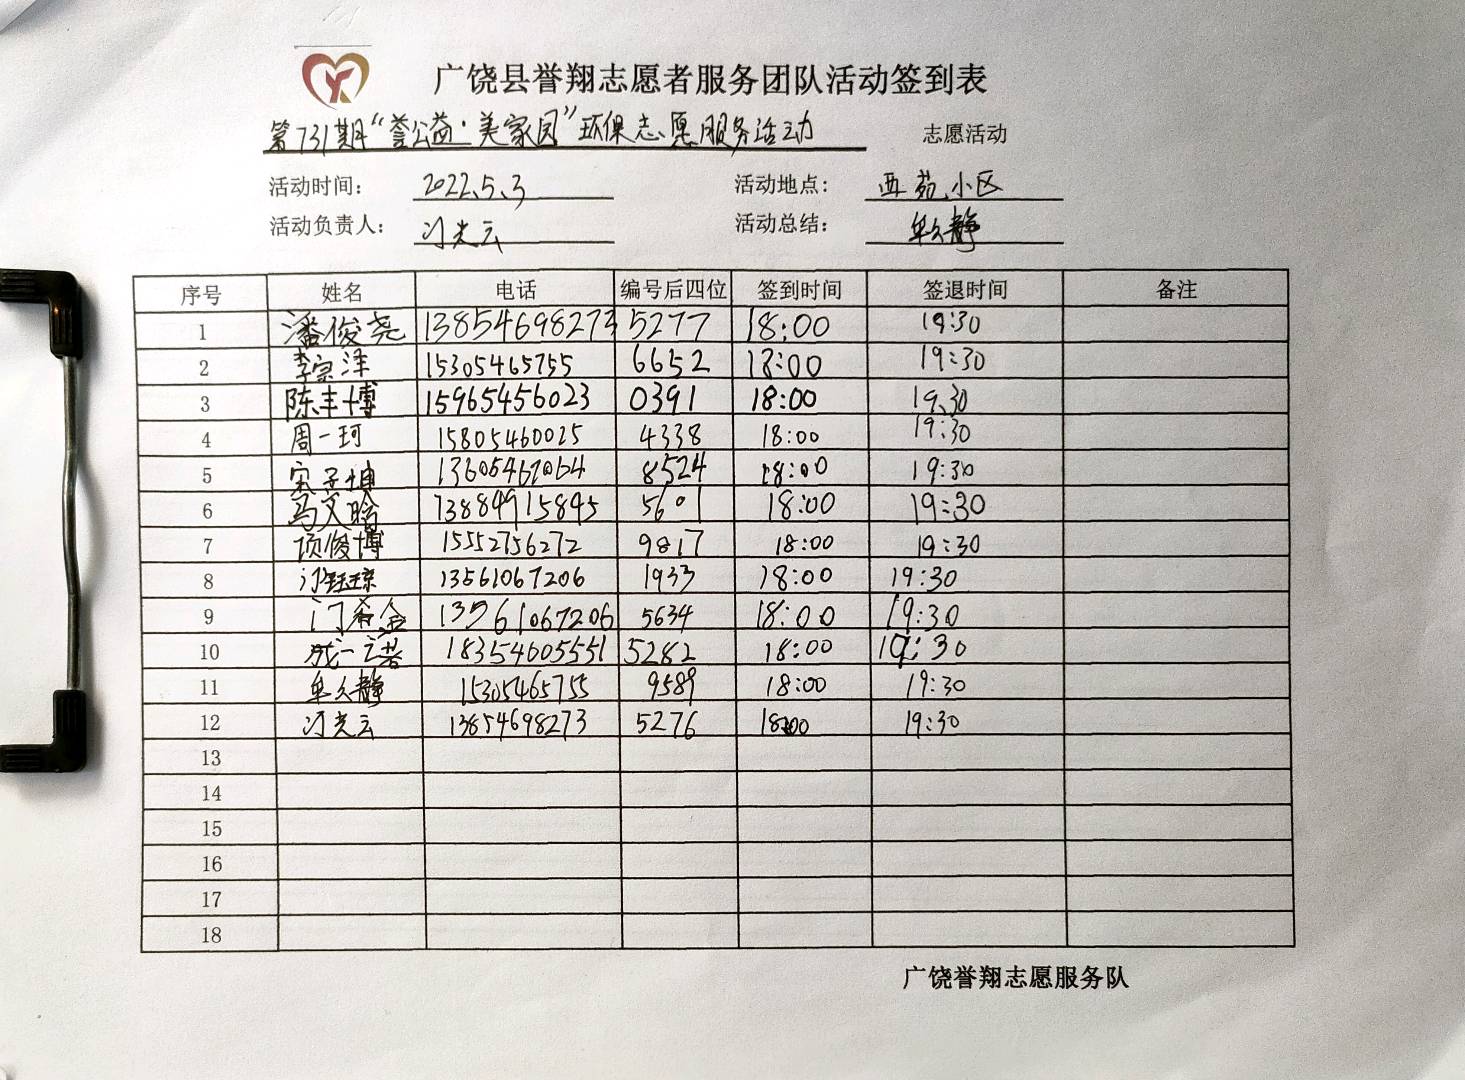 广饶县誉翔志愿者服务团队活动签到表
第731期“誉公益·美家园”环保志愿服务活动 志愿活动
活动时间: 2022.5.3 活动地点: 西苑小区
活动负责人: 冯光云 活动总结: 牟久静
序号 姓名 电话 编号后四位 签到时间 签退时间 备注
1 潘俊尧 13854698273 5277 18:00 19:30
2 李宗泽 15305465755 6652 18:00 19:30
3 陈丰博 15965456023 0391 18:00 19.30
4 周一珂 15805460025 4338 18:00 19:30
5 宋子博 13605467064 8524 18:00 19:30
6 马文晗 13884915895 5601 18:00 19:30
7 项俊博 15552756272 9817 18:00 19:30
8 13561067206 1933 18:00 19:30
9 13561067206 5634 18:00 19:30
10 成一诺 18354605551 5282 18:00 19:30
11 牟久静 15305465755 9589 18:00 19:30
12 冯光云 13854698273 5276 18:00 19:30
13
14
15
16
17
18
广饶誉翔志愿服务队